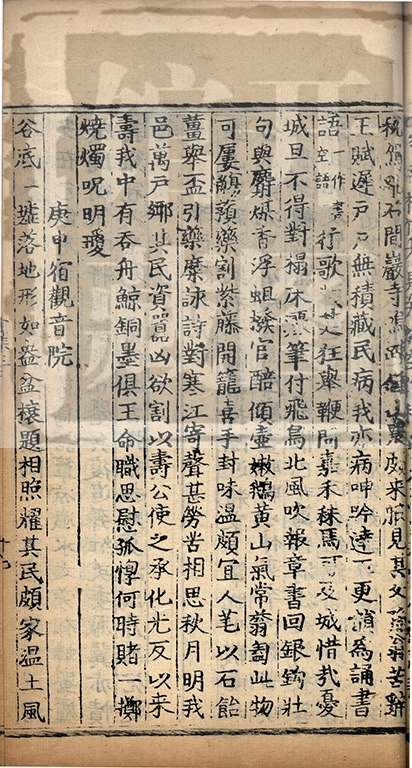 石間巖寺来見其父
王賦遲戶戶無積藏民病我亦病呻吟達五更韻為誦書
語一作書空語行歌楚狂舉鞭問嘉禾秣馬可及城惜哉憂
城旦不得對榻床裹筆付飛鳥北風吹報章書回銀鉤壯
句與麝煤香浮蛆撥官醅傾壺嫩鵝黃山氣常蓊匌此物
可屢觴藾蘗割紫藤開籠喜手封味温頗宜人芼以石飴
薑舉盃引藥糜詠詩對寒江寄聲甚勞苦相思秋月明我
邑萬戶鄉其民資嚚凶欲割以壽公使之承化光反以来
壽我中有吞舟鯨銅墨俱王命職思慰孤惸何時賭一擲
燒燭呪明瓊
庚申宿觀音院
谷底一墟落地形如盎盆榱題相照耀其民頗家温土風